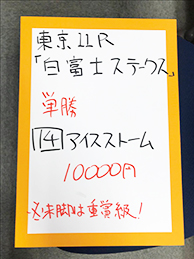 東京11R
「白富士ステークス」
単勝
14アイスストーム
10000円
末脚は重賞級!